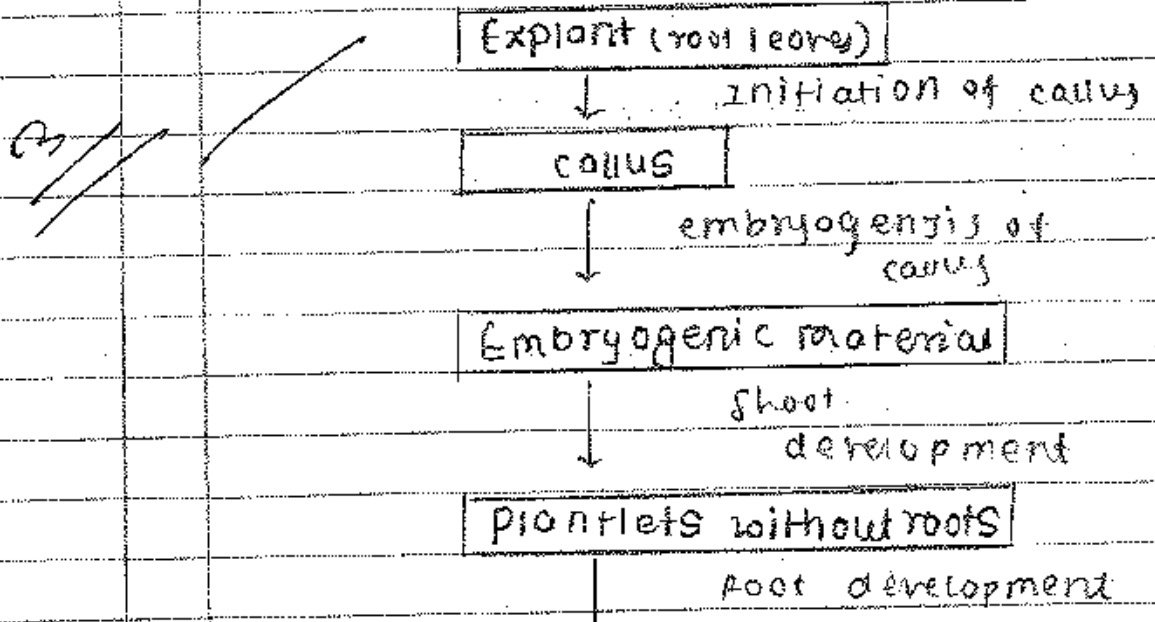 Explant (root leaves)
Initiation of callus
callus
embryogensis of
callus
Embryogenic material
shoot
development
plantlets without roots
Root development